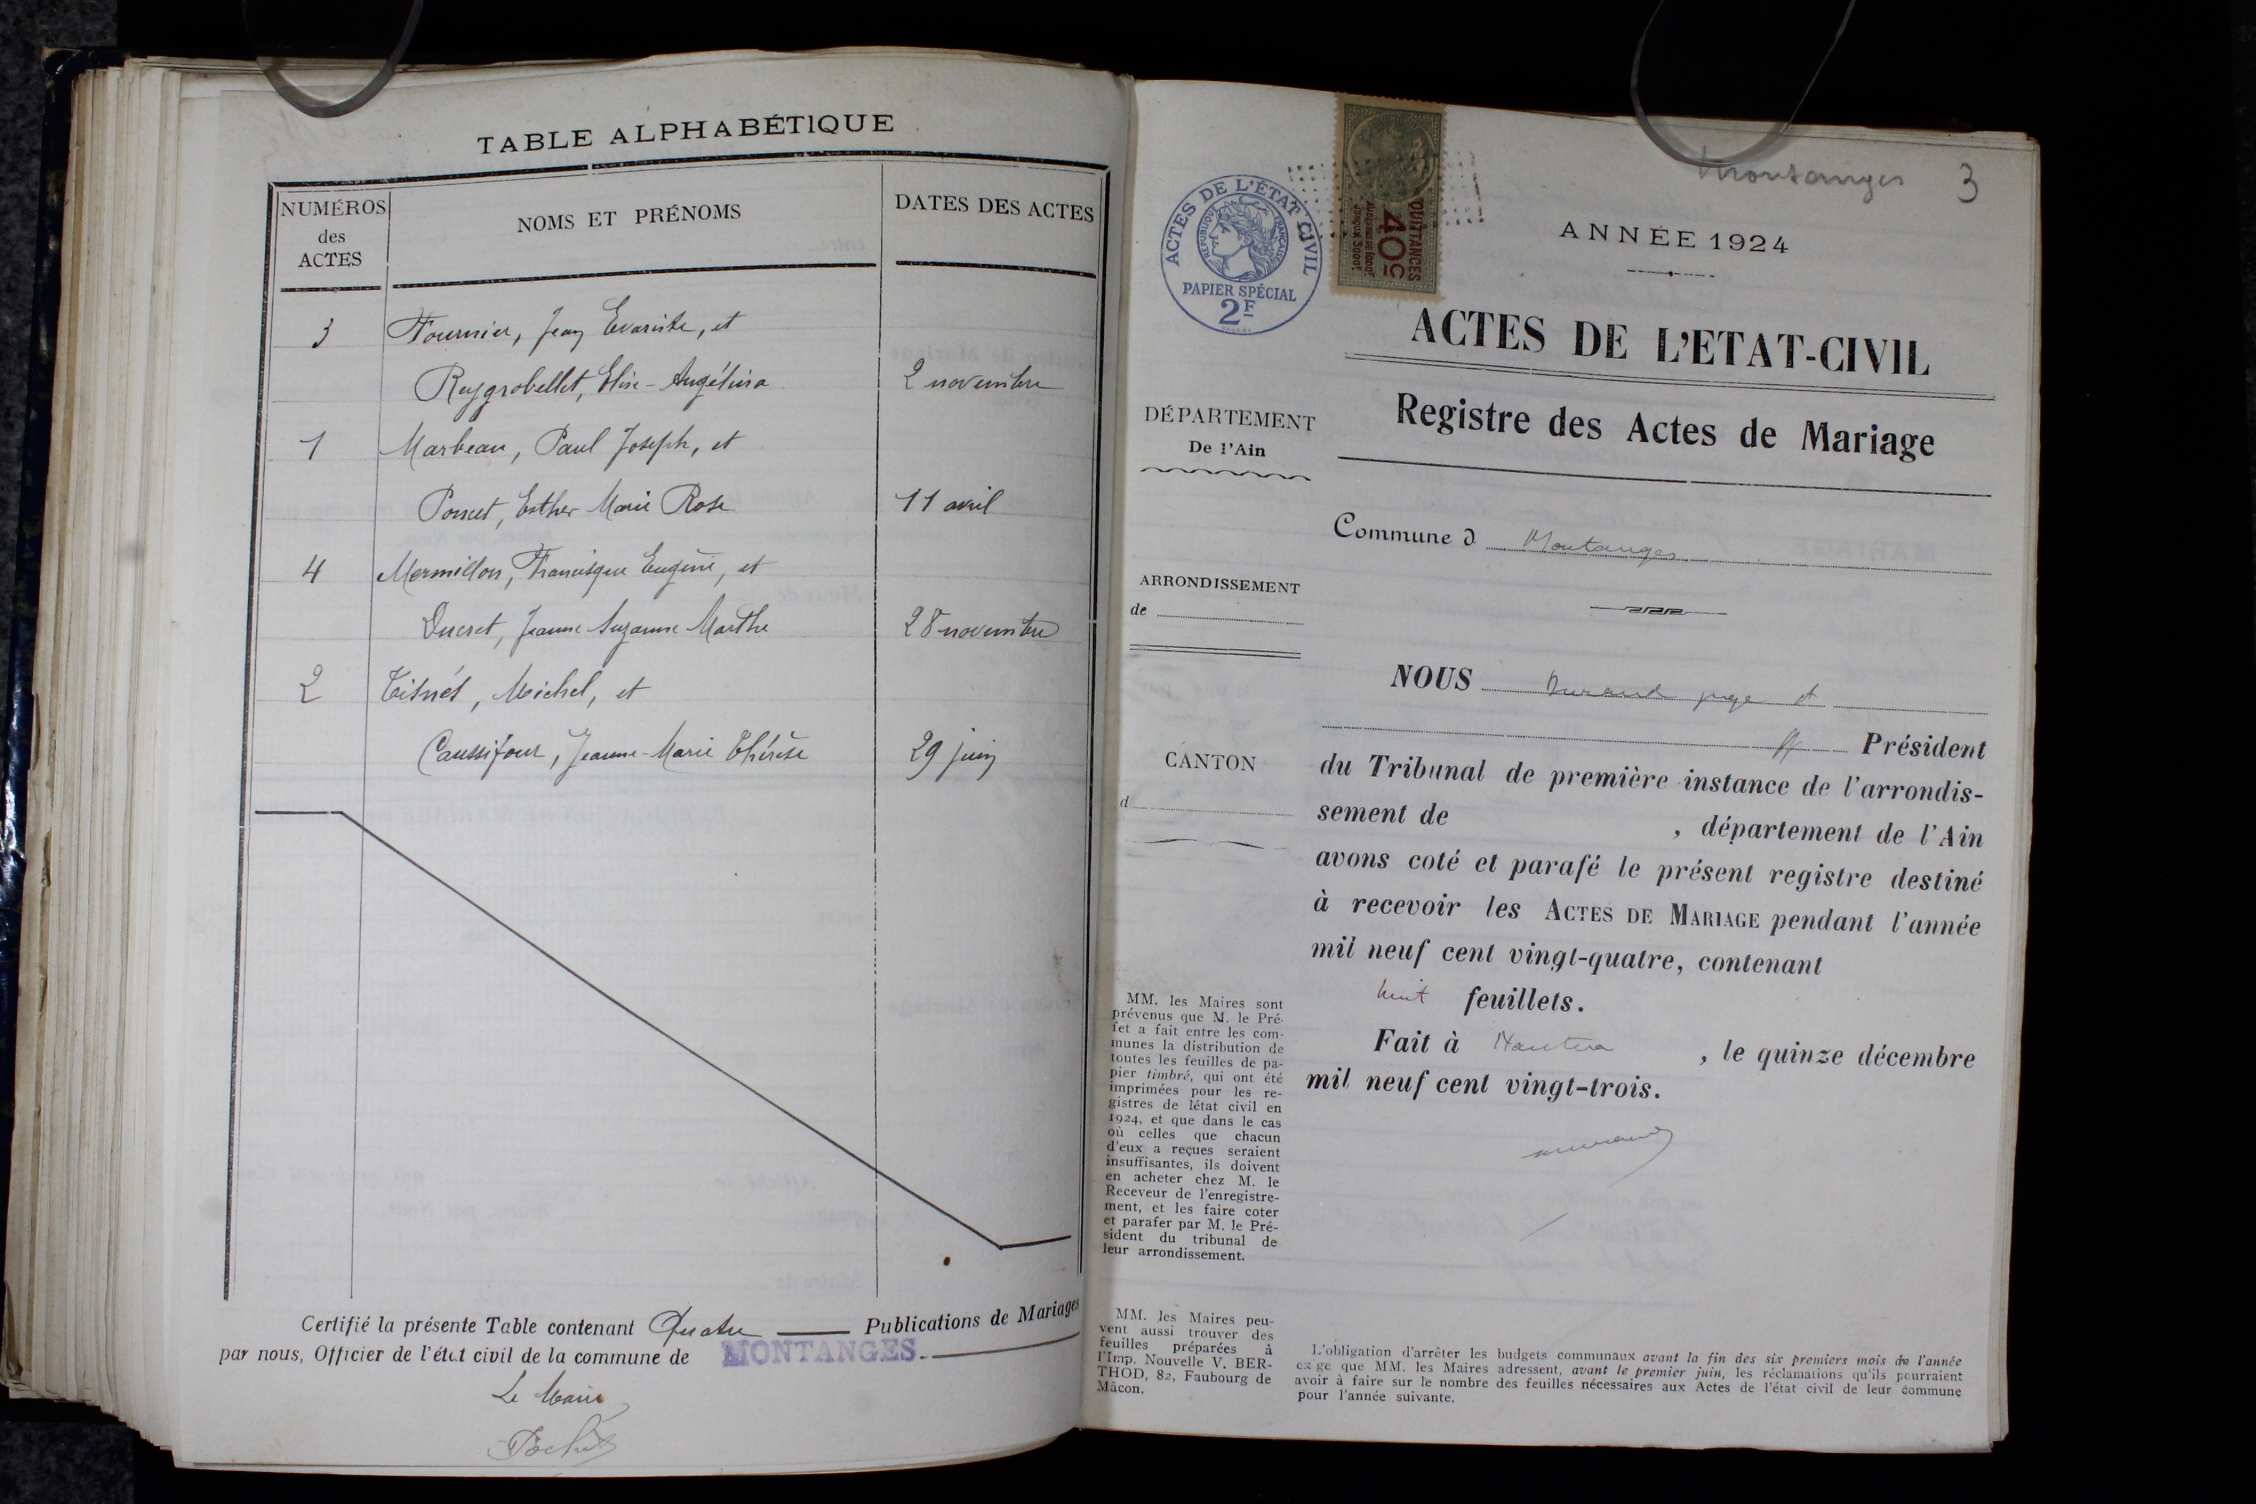 TABLE ALPHABÉTIQUE
NUMÉROS
des
ACTES
NOMS ET PRÉNOMS
DATES DES ACTES
3 Fournier, Jean Evariste, et
Ruygrobellet, Elise-Angélina 2 novembre
1 Marbeau, Paul Joseph, et
Poncet, Esther Marie Rose 11 avril
4 Mermillon, Francisque Eugène, et
Ducret, Jeanne Suzanne Marthe 28 novembre
2 Tisnés, Michel, et
Caussifour, Jeanne-Marie Thérèse 29 juin
Certifié la présente Table contenant Quatre Publications de Mariages
par nous, Officier de l'état civil de la commune de MONTANGES
Le Maire
Montanges 3
ACTES DE L'ÉTAT CIVIL
RÉPUBLIQUE FRANÇAISE
PAPIER SPÉCIAL
2F
QUITTANCES
40c
ANNÉE 1924
ACTES DE L'ETAT-CIVIL
Registre des Actes de Mariage
DÉPARTEMENT
De l'Ain
Commune d Montanges
ARRONDISSEMENT
de
CANTON
d
NOUS Durand juge
Président
du Tribunal de première instance de l'arrondis-
sement de , département de l'Ain
avons coté et parafé le présent registre destiné
à recevoir les ACTES DE MARIAGE pendant l'année
mil neuf cent vingt-quatre, contenant
huit feuillets.
Fait à Nantua , le quinze décembre
mil neuf cent vingt-trois.
Durand
MM. les Maires sont
prévenus que M. le Pré-
fet a fait entre les com-
munes la distribution de
toutes les feuilles de pa-
pier timbré, qui ont été
imprimées pour les re-
gistres de létat civil en
1924, et que dans le cas
où celles que chacun
d'eux a reçues seraient
insuffisantes, ils doivent
en acheter chez M. le
Receveur de l'enregistre-
ment, et les faire coter
et parafer par M. le Pré-
sident du tribunal de
leur arrondissement.
MM. les Maires peu-
vent aussi trouver des
feuilles préparées à
l'Imp. Nouvelle V. BER-
THOD, 82, Faubourg de
Mâcon.
L'obligation d'arrêter les budgets communaux avant la fin des six premiers mois de l'année
exige que MM. les Maires adressent, avant le premier juin, les réclamations qu'ils pourraient
avoir à faire sur le nombre des feuilles nécessaires aux Actes de l'état civil de leur commune
pour l'année suivante.